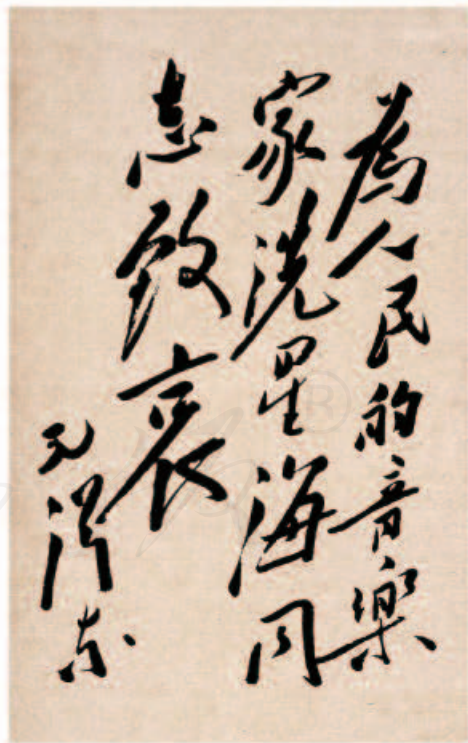 為人民的音樂
家冼星海同
志致哀
毛澤东
®